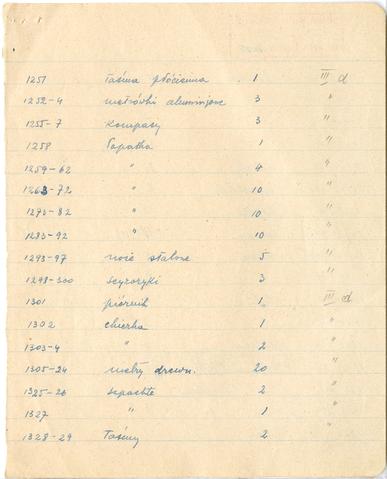 1251 taśma płócienna 1 III d
1252-4 metrówki aluminjowe 3 "
1255-7 kompasy 3 "
1258 Łopatka 1 "
1259-62 " 4 "
1263-72 " 10 "
1273-82 " 10 "
1283-92 " 10 "
1293-97 noże stalowe 5 "
1298-300 scyzoryki 3 "
1301 piórnik 1 III d
1302 ekierka 1 "
1303-4 " 2 "
1305-24 metry drewn. 20 "
1325-26 szpachte 2 "
1327 " 1 "
1328-29 Taśmy 2 "